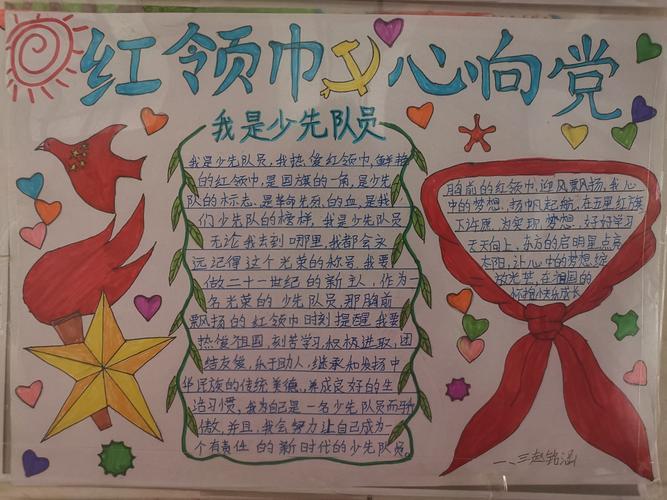 红领巾心向党
我是少先队员
我是少先队员,我热爱红领巾,鲜艳
的红领巾,是国旗的一角,是少先
队的标志,是革命先烈的血,是我
们少先队的榜样,我是少先队员
无论我去到哪里,我都会永
远记得这个光荣的称号,我要
做二十一世纪的新主人,作为一
名光荣的少先队员,那胸前
飘扬的红领巾时刻提醒我要
热爱祖国,刻苦学习,积极进取,团
结友爱,乐于助人,继承和发扬中
华民族的传统美德,养成良好的生
活习惯,我为自己是一名少先队员而骄
傲,并且,我会努力让自己成为一
个有责任的新时代的少先队员。
胸前的红领巾,迎风飘扬,我心
中的梦想,扬帆起航,在五星红旗
下许愿,为实现梦想,好好学习
天天向上,东方的启明星点亮
太阳,让心中的梦想绽
放光芒,在祖国的
怀抱快乐成长
一、三赵铭涵